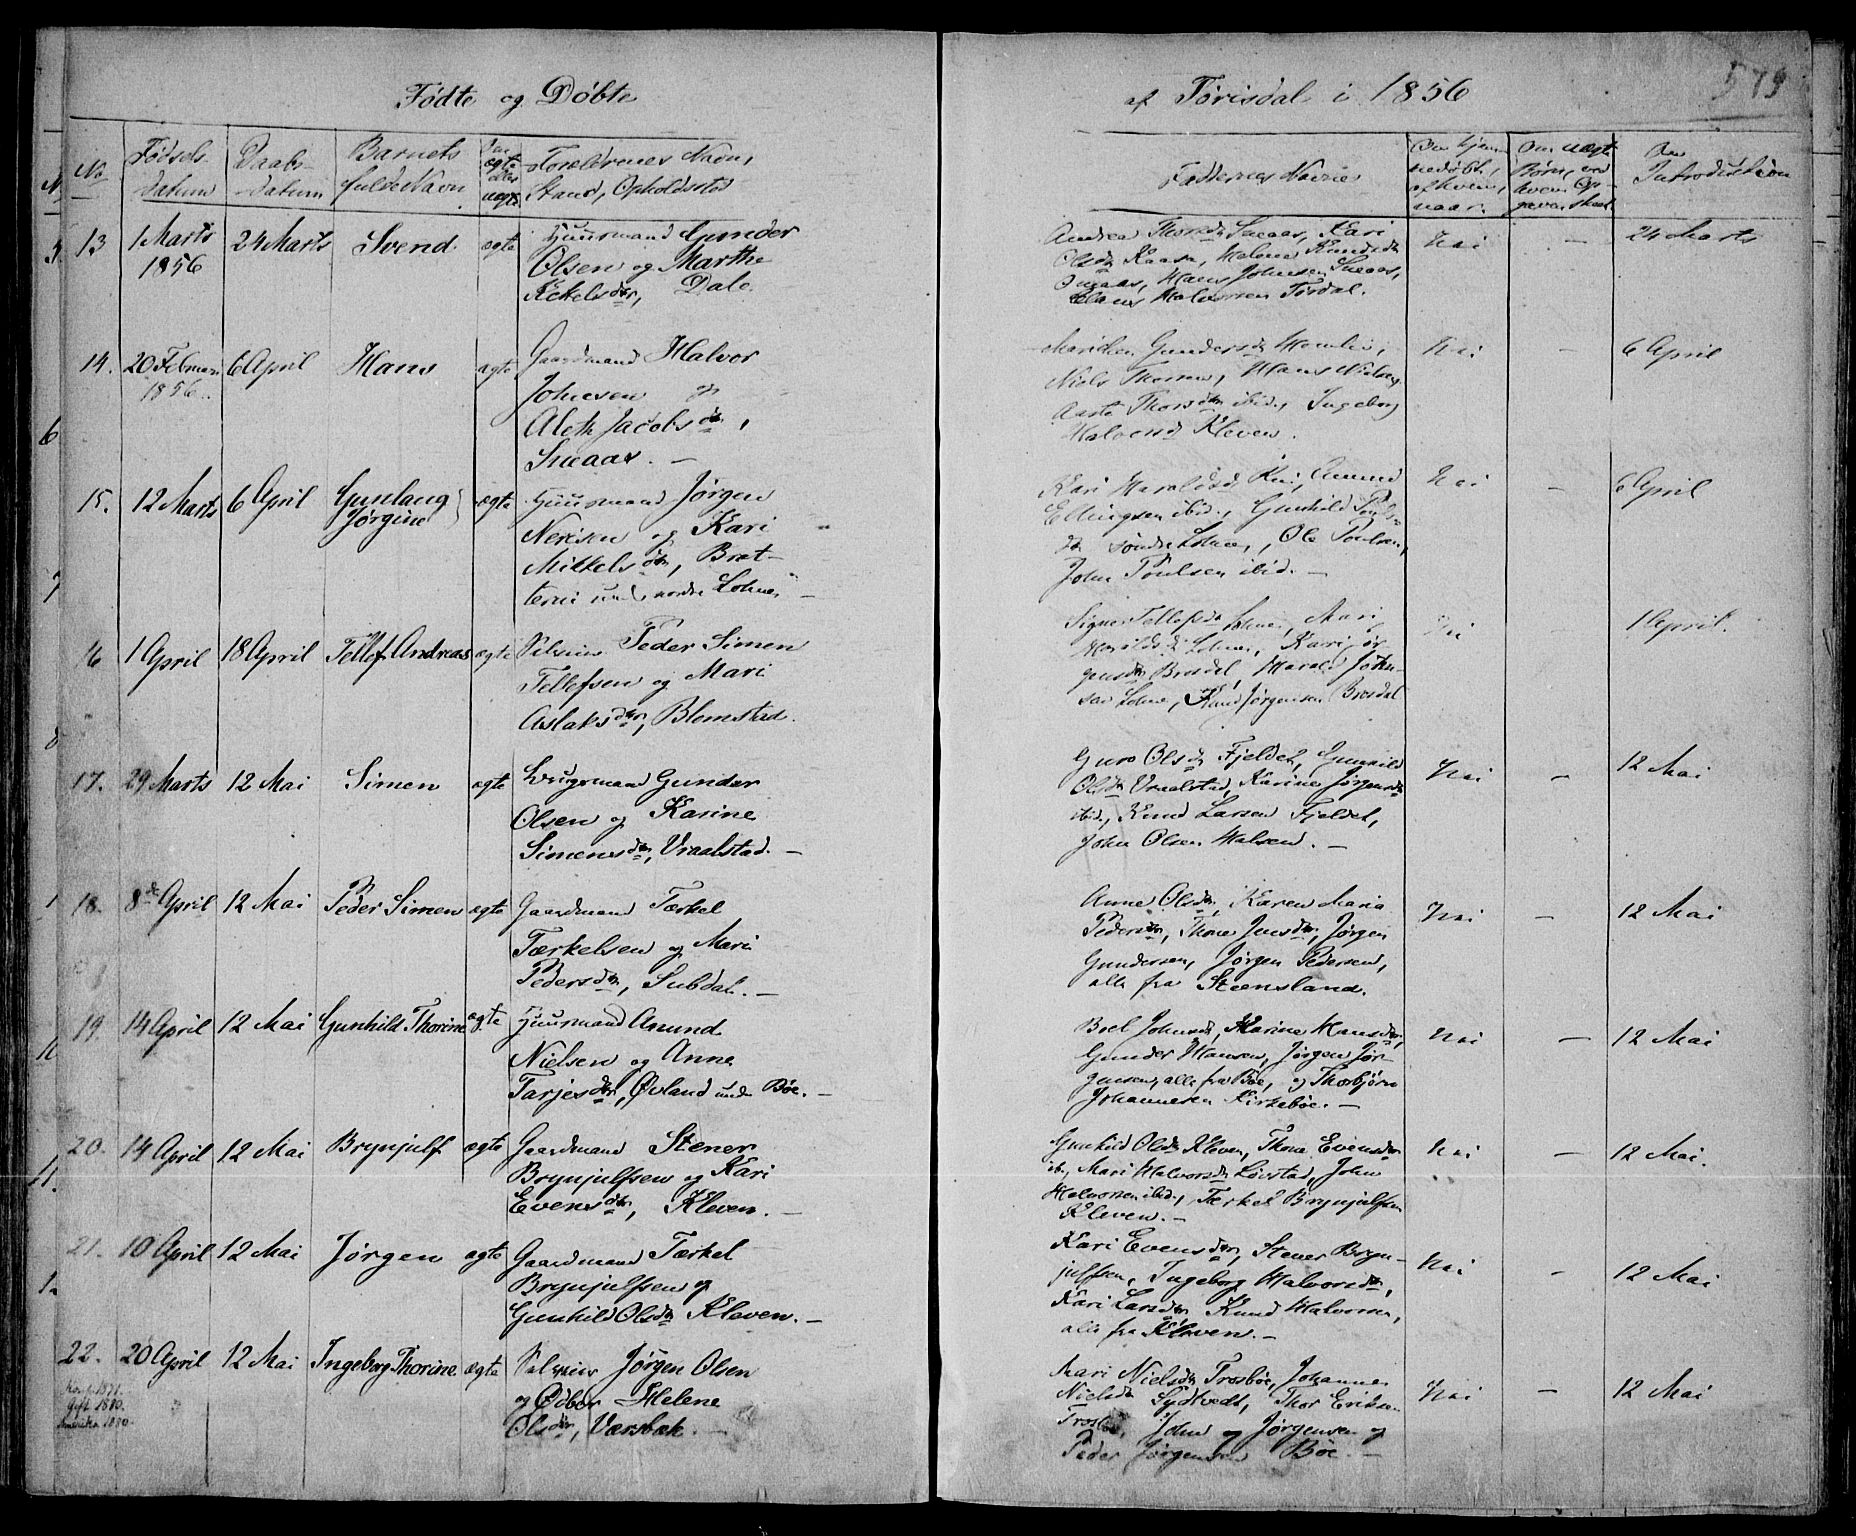 Fødte og Døbte
af Tørisdal i 1856
579
No
Fødsels
datum
Daabs-
datum
Barnets
fulde Navn
ægte
eller
uægte
Forældrenes Navn,
Stand, Opholdsted
Faddernes Navne
Introduktion
13
1 Marts
1856
24 Marts
Svend.
ægte
Huusmand Gunder
Olsen og Marthe
Kekelsdtr, Dale.
Andrea Thorsdtr Sneaas, Kari
Olsdtr Kaasa,
Hans Johnsen Sneaas,
Halvorsen Tørdal.
Nei
–
24 Marts
14.
20 Februar
1856.
6 April
Hans
ægte
Gaardmand Halvor
Johnsen og
Aleth Jacobsdtr,
Sneaas. –
Gundersdtr
Niels Thorsen, Hans Nielsen
Aaste Thorsdtr ibid, Ingeborg
Halvorsd Kleven.
Nei
–
6 April
15.
12 Marts
6 April
Gunlaug
Jørgine
ægte
Huusmand Jørgen
Nerisen og Kari
Mikkelsdtr, Brat-
terni und. nordre Lohne –
Kari Haralds Rui, Amund
Ellingsen ibid., Gunhild Pouls-
dtr søndre Lohne, Ole Poulsen,
John Poulsen ibid. –
Nei
–
6 April
16
1 April
18 April
Tellef Andreas
ægte
Selveier Peder Simen
Tellefsen og Mari
Aslaksdtr, Blomstad.
Signe Tellefsdtr Lohne, Mari
Haraldsd Lohne, Kari Jør
gensdtr Brosdal, Harald John-
sen Lohne, Knud Jørgensen Brosdal
Nei
–
1 April.
17.
29 Marts
12 Mai
Simen
ægte
Brugsmand Gunder
Olsen og Karine
Simensdtr, Vraalstad. –
Guro Olsd Fjeldet, Gunhild
Olsdtr Vraalstad, Karine Jørgensdtr
ibid., Knud Larsen Fjeldet,
John Olsen Halsen. –
Nei
–
12 Mai
18.
8de April
12 Mai
Peder Simen
ægte
Gaardmand Tærkel
Tærkelsen og Mari
Pedersdtr, Subdal. –
Anne Olsdtr, Karen Maria
Pedersdtr, Thone Jensdtr, Jørgen
Gundersen, Jørgen Pedersen,
alle fra Steensland.
Nei
–
12 Mai
19.
14 April
12 Mai
Gunhild Thorine
ægte
Huusmand Anund
Nielsen og Anne
Tarjesdtr, Øvland under Bøe. –
Boel Johnsd, Karine Hansdtr,
Gunder Hansen, Jørgen Jør-
gensen, alle fra Bøe, og Thorbjørn
Johannesen Kirkebøe. –
Nei
–
12 Mai
20.
14 April
12 Mai
Brynjulf
ægte
Gaardmand Stener
Brynjulfsen og Kari
Evensdtr, Kleven. –
Gunhild Olsdtr Kleven, Thone Evensdtr
ib., Mari Halvorsdtr Løvstad, John
Halvorsen ibid., Tærkel Brynjulfsen
Kleven. –
Nei
–
12 Mai.
21.
10 April
12 Mai
Jørgen
ægte
Gaardmand Tærkel
Brynjulfsen og
Gunhild Olsdtr Kleven. –
Kari Evensdtr, Stener Bryn-
julfsen, Ingeborg Halvorsdtr,
Kari Larsdtr, Knud Halvorsen,
alle fra Kleven. –
Nei
–
12 Mai
22.
20 April
12 Mai
Ingeborg Thorine
ægte
Konf. 1871.
Gift 1880.
Amerika 1880.
Selveier Jørgen Olsen
og Ødbør Helene
Olsdtr, Værsbæk. –
Mari Nielsdtr Trosbøe, Johanne
Nielsdtr Sydtvedt, Thor Eriksen
Trosbøe, John og Jørgensen og
Peder Jørgensen Bøe. –
Nei
–
12 Mai